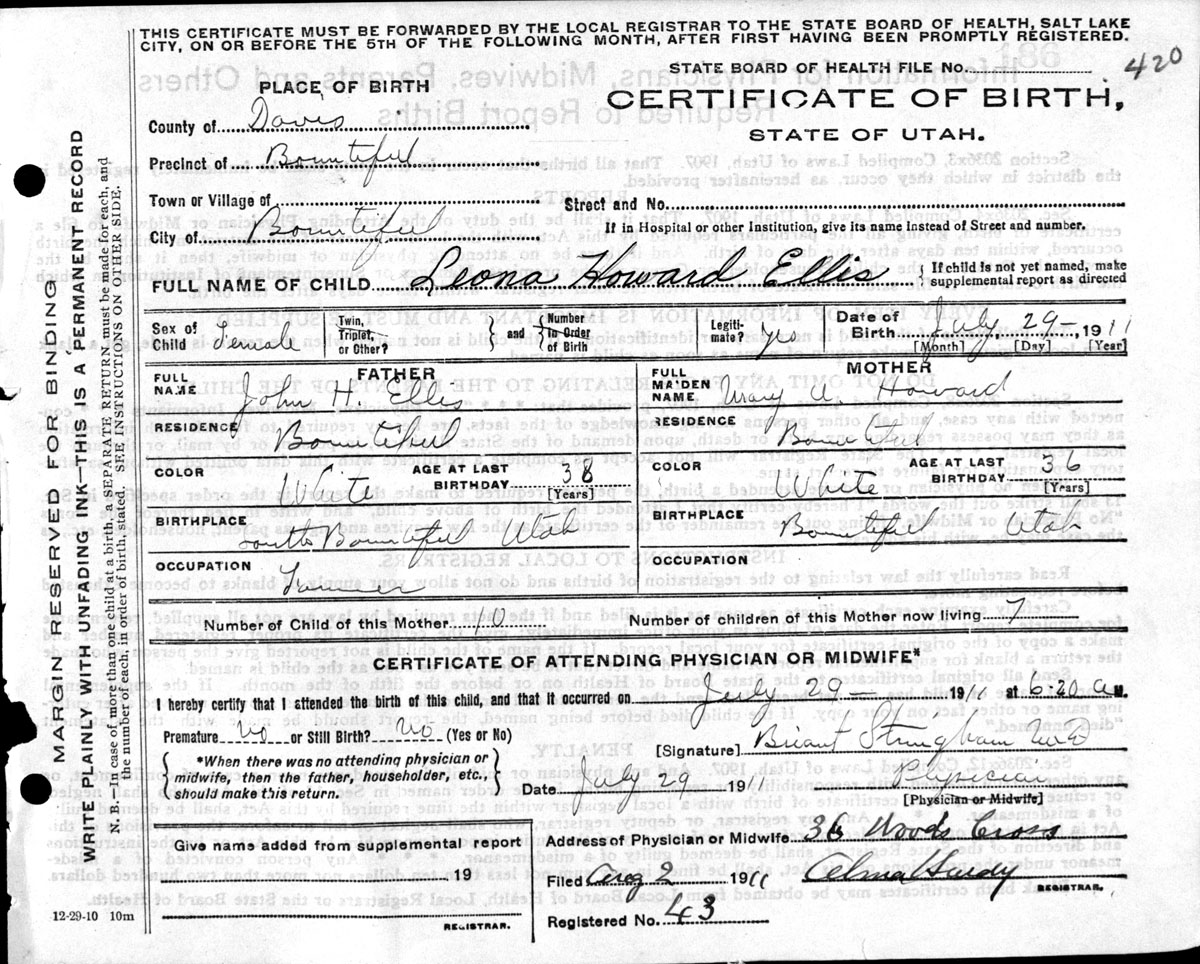 THIS CERTIFICATE MUST BE FORWARDED BY THE LOCAL REGISTRAR TO THE STATE BOARD OF HEALTH, SALT LAKE
CITY, ON OR BEFORE THE 5TH OF THE FOLLOWING MONTH, AFTER FIRST HAVING BEEN PROMPTLY REGISTERED.
STATE BOARD OF HEALTH FILE No. 420
PLACE OF BIRTH
CERTIFICATE OF BIRTH,
STATE OF UTAH.
County of Davis
Precinct of Bountiful
Town or Village of
Street and No.
City of Bountiful
If in Hospital or other Institution, give its name Instead of Street and number.
FULL NAME OF CHILD Leona Howard Ellis { If child is not yet named, make
supplemental report as directed
Sex of Child Female
Twin, Triplet, or Other? } and { Number in Order of Birth
Legitimate? Yes
Date of Birth July 29 1911
[Month] [Day] [Year]
FATHER
FULL NAME John H. Ellis
RESIDENCE Bountiful
COLOR White
AGE AT LAST BIRTHDAY 38
[Years]
BIRTHPLACE South Bountiful Utah
OCCUPATION Farmer
MOTHER
FULL MAIDEN NAME Mary A. Howard
RESIDENCE Bountiful
COLOR White
AGE AT LAST BIRTHDAY 36
[Years]
BIRTHPLACE Bountiful Utah
OCCUPATION
Number of Child of this Mother 10
Number of children of this Mother now living 7
CERTIFICATE OF ATTENDING PHYSICIAN OR MIDWIFE*
I hereby certify that I attended the birth of this child, and that it occurred on July 29 1911 at 6:20 a M.
Premature No or Still Birth? No (Yes or No)
{ *When there was no attending physician or
midwife, then the father, householder, etc.,
should make this return. }
[Signature] Briant Stringham M D
Date July 29 191
Physician
[Physician or Midwife]
Give name added from supplemental report
19
REGISTRAR.
Address of Physician or Midwife Woods Cross
Filed Aug 2 1911
REGISTRAR.
Registered No. 43
12-29-10 10m
MARGIN RESERVED FOR BINDING
WRITE PLAINLY WITH UNFADING INK—THIS IS A PERMANENT RECORD
N. B.—In case of more than one child at a birth, a SEPARATE RETURN must be made for each, and
the number of each, in order of birth, stated. SEE INSTRUCTIONS ON OTHER SIDE.